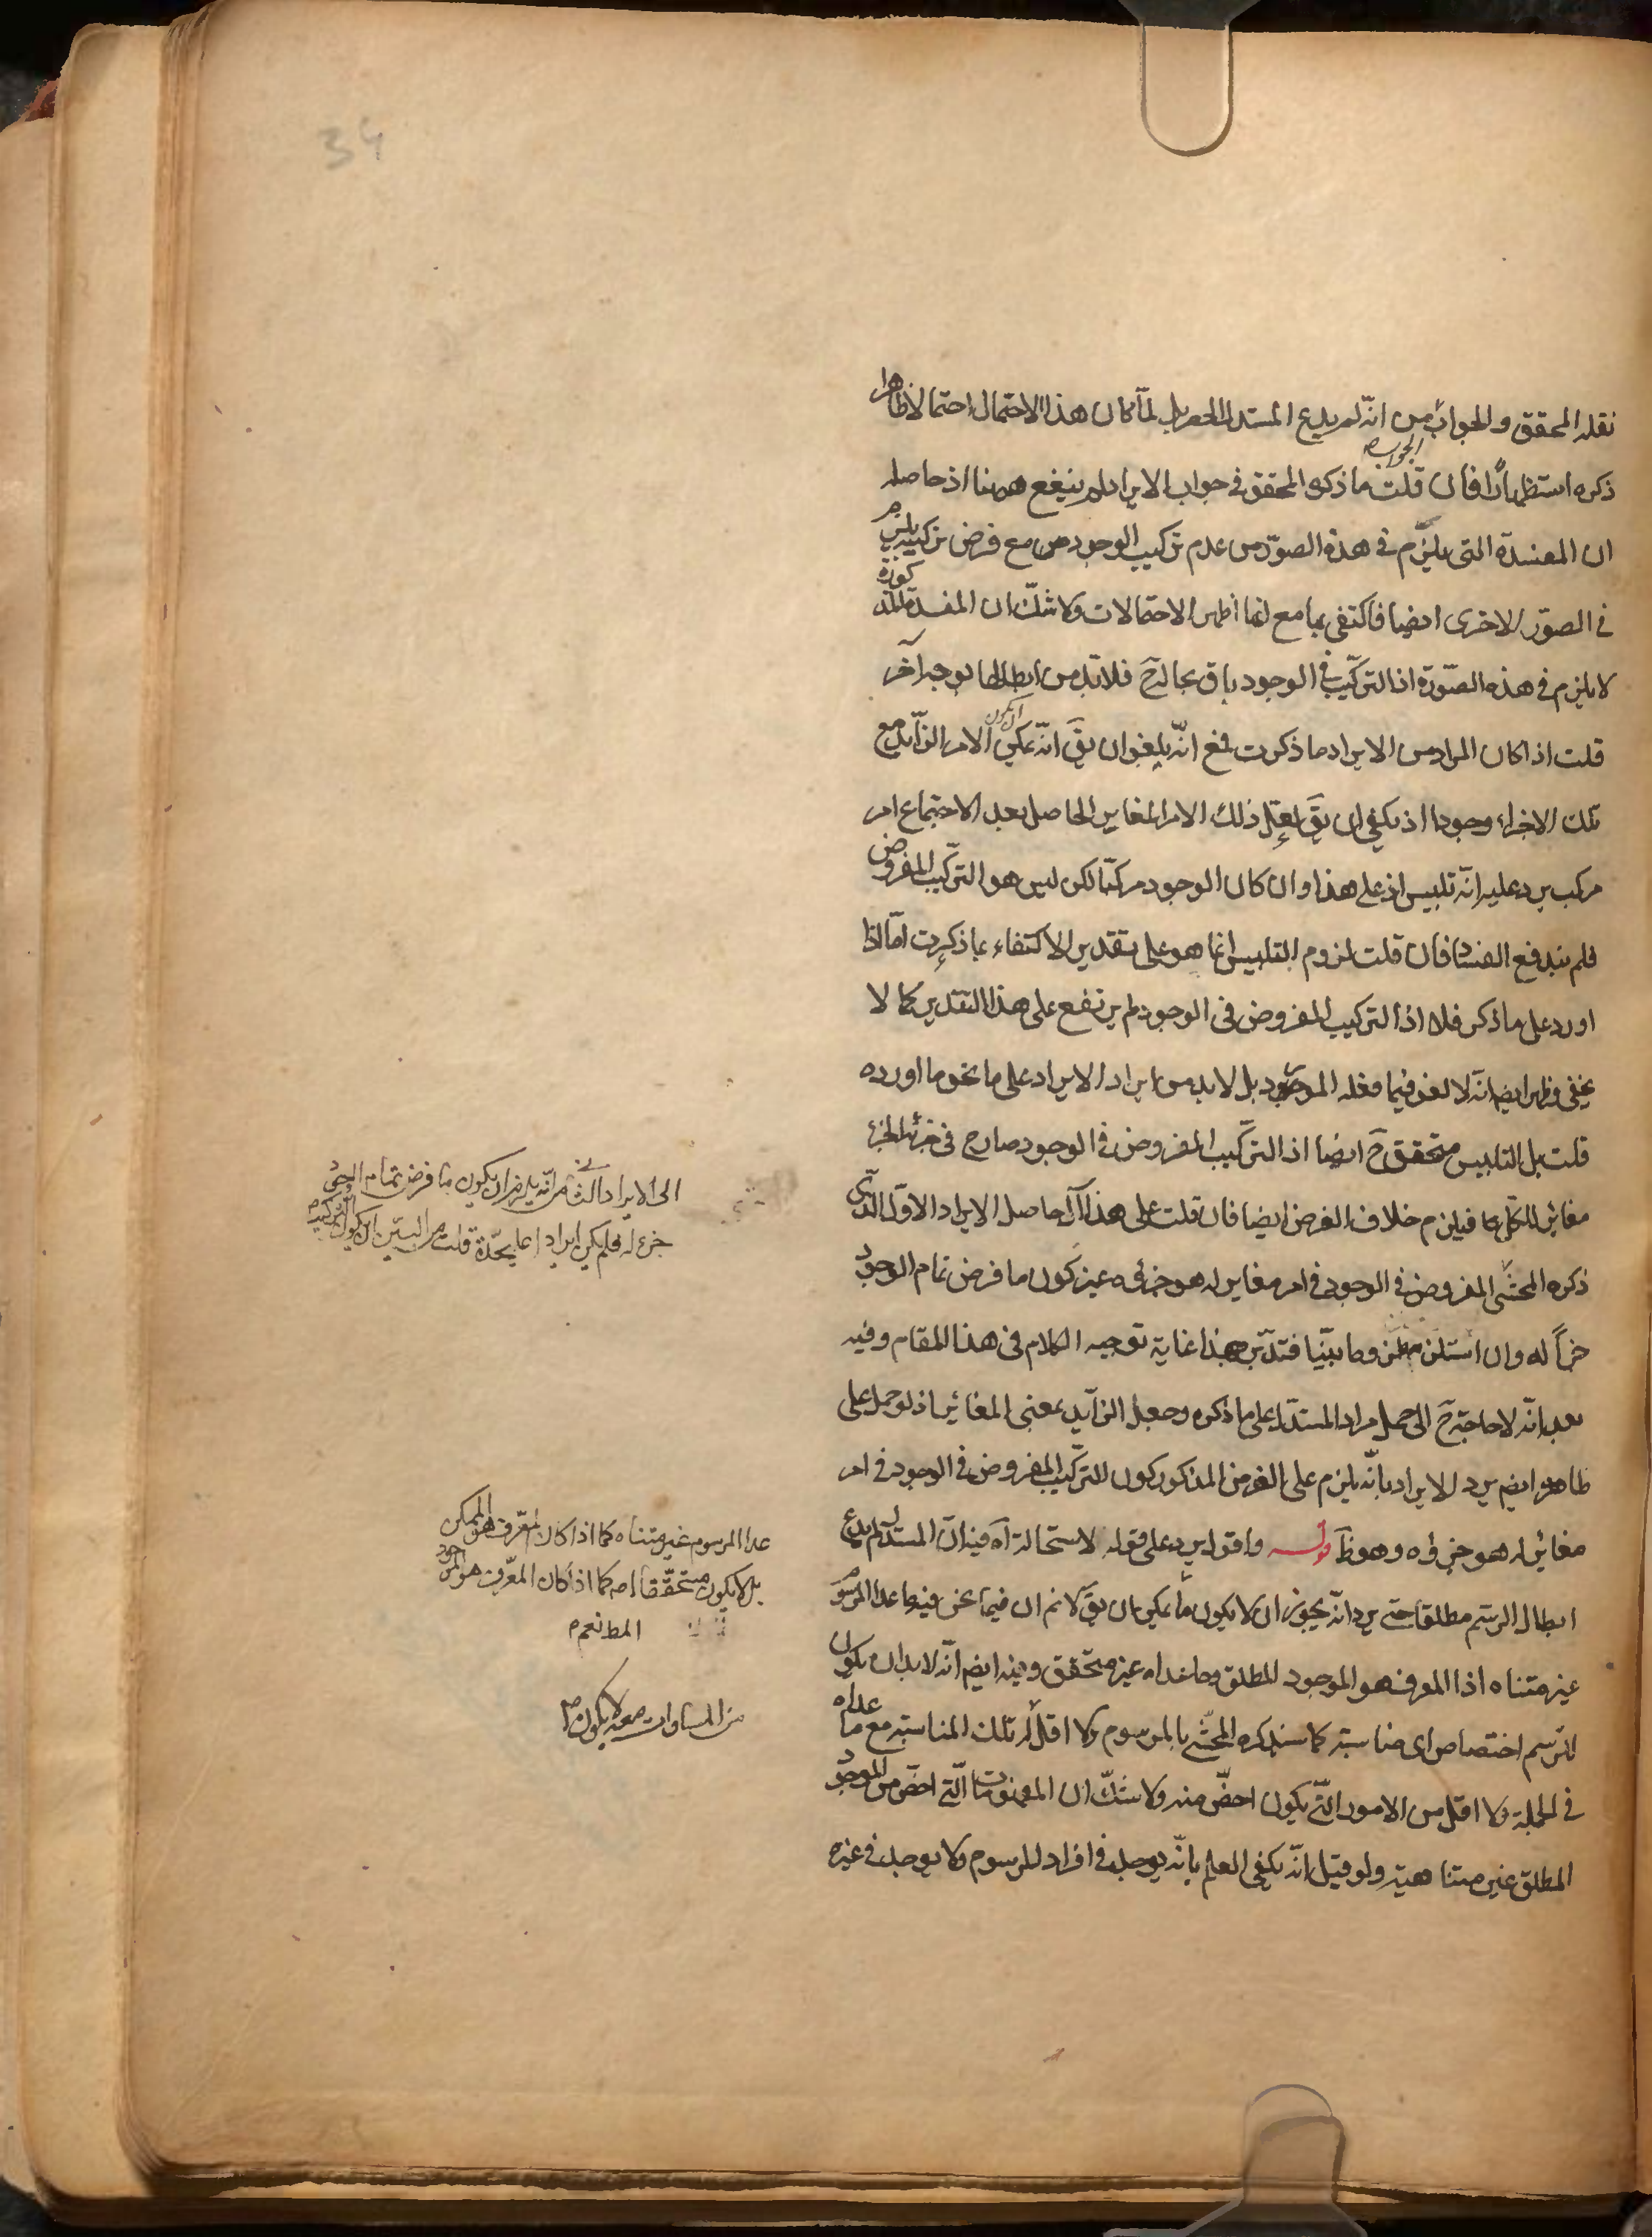 نقله المحقق والجواب من انّه لم يدع المستدل الحصر بل لمّا كان هذا الاحتمال احتمالا ظاهرا
ذكره استظهارا فان قلت ما ذكره المحقق فى جواب الايراد لم ينفع ههنا اذ حاصله
الجواب
ان المفسدة التى يلزم فى هذه الصورة من عدم تركيب الوجود مع فرض تركيبه يلزم
فى الصور الاخرى ايضا فاكتفى بها مع انها اظهر الاحتمالات ولا شكّ ان المفسدة المذكورة
لا يلزم فى هذه الصّورة اذ التركيب فى الوجود باق بحاله ح فلا بدّ من ابطالها بوجه آخر
قلت اذا كان المراد من الايراد ما ذكرت فمع انّه يلغو ان يق انّه يمكن ان يكون الامر الزايد مع
تلك الاجزاء وجودا اذ يكفى ان يق لعل ذلك الامر المغاير الحاصل بعد الاجتماع امر
مركب يرد عليه انّه تلبيس اذ على هذا وان كان الوجود مركبا لكن ليس هو التركيب المفروض
فلم يندفع الفساد فان قلت لزوم التلبيس انما هو على تقدير الاكتفاء بما ذكرت امّا اذا
اورد على ما ذكر فلا اذ التركيب المفروض فى الوجود لم يرتفع على هذا التقدير كما لا
يخفى وظهر ايضا انّه لا لغو فيما فعله المورد بل لا بد من ايراد الايراد على ما نحو ما اورده
قلت بل التلبيس متحقق ح ايضا اذ التركيب المفروض فى الوجود صار ح فى جزئه الجزء
مغاير للكل بما فيلزم خلاف الفرض ايضا فان قلت على هذا آل حاصل الايراد الاول الذى
ذكره المحشى المفروض فى الوجود فى امر مغاير له هو جزئه غير كون ما فرض تمام الوجود
جزأ له وان استلزمه وما بيّنا فتدبّر هذا غاية توجيه الكلام فى هذا المقام وفيه
بعد انّه لا حاجة ح الى حمل مراد المستدل على ما ذكره وجعل الزايد بمعنى المغاير اذ لو حمل على
ظاهره ايضم يرد الايراد بانّه يلزم على الفرض المذكور كون التركيب المفروض فى الوجود فى امر
مغاير له هو جزؤه وهو ظ قوله واقول يرد على قوله لاستحالة آه فيه ان المستدل لم يدع
ابطال الرسم مطلقا حتى يرد انّه يجوز ان لا يكون ما يمكن ان يق لا نم ان فيما نحن فيه ما عدا المرسوم
غير متناه اذ المعرف هو الموجود المطلق وما عداه غير متحقق وفيه ايضم انّه لا بد ان يكون
للرسم اختصاص اى مناسبة كما سنذكره المحشّى بالمرسوم ولا اقل له تلك المناسبة مع ما عداه
فى الجملة ولا اقل من الامور التى يكون اخصّ منه ولا شكّ ان المفهومات الّتى اخصّ من الموجود
المطلق غير متناهية ولو قيل انّه يكفى العلم بانّه يوجد فى افراد المرسوم ولا يوجد فى غيره
الى الايراد الثانى من انّه يلزم ان يكون ما فرض تمام الوجود
جزء له فلم يكن ايرادا على حدة قلت من البيّن ان كون التركيب
عدا المرسوم غير متناه كما اذا كان المعرّف هو الممكن
بل لا يكون متحققا اصم كما اذا كان المعرّف هو الموجود
المط نعم
من المساوات معه لا يكون
34